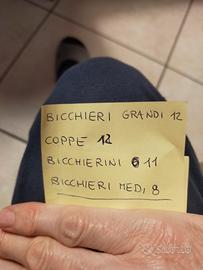 BICCHIERI GRANDI 12
COPPE 12
BICCHIERINI 11
BICCHIERI MEDI 8
subito